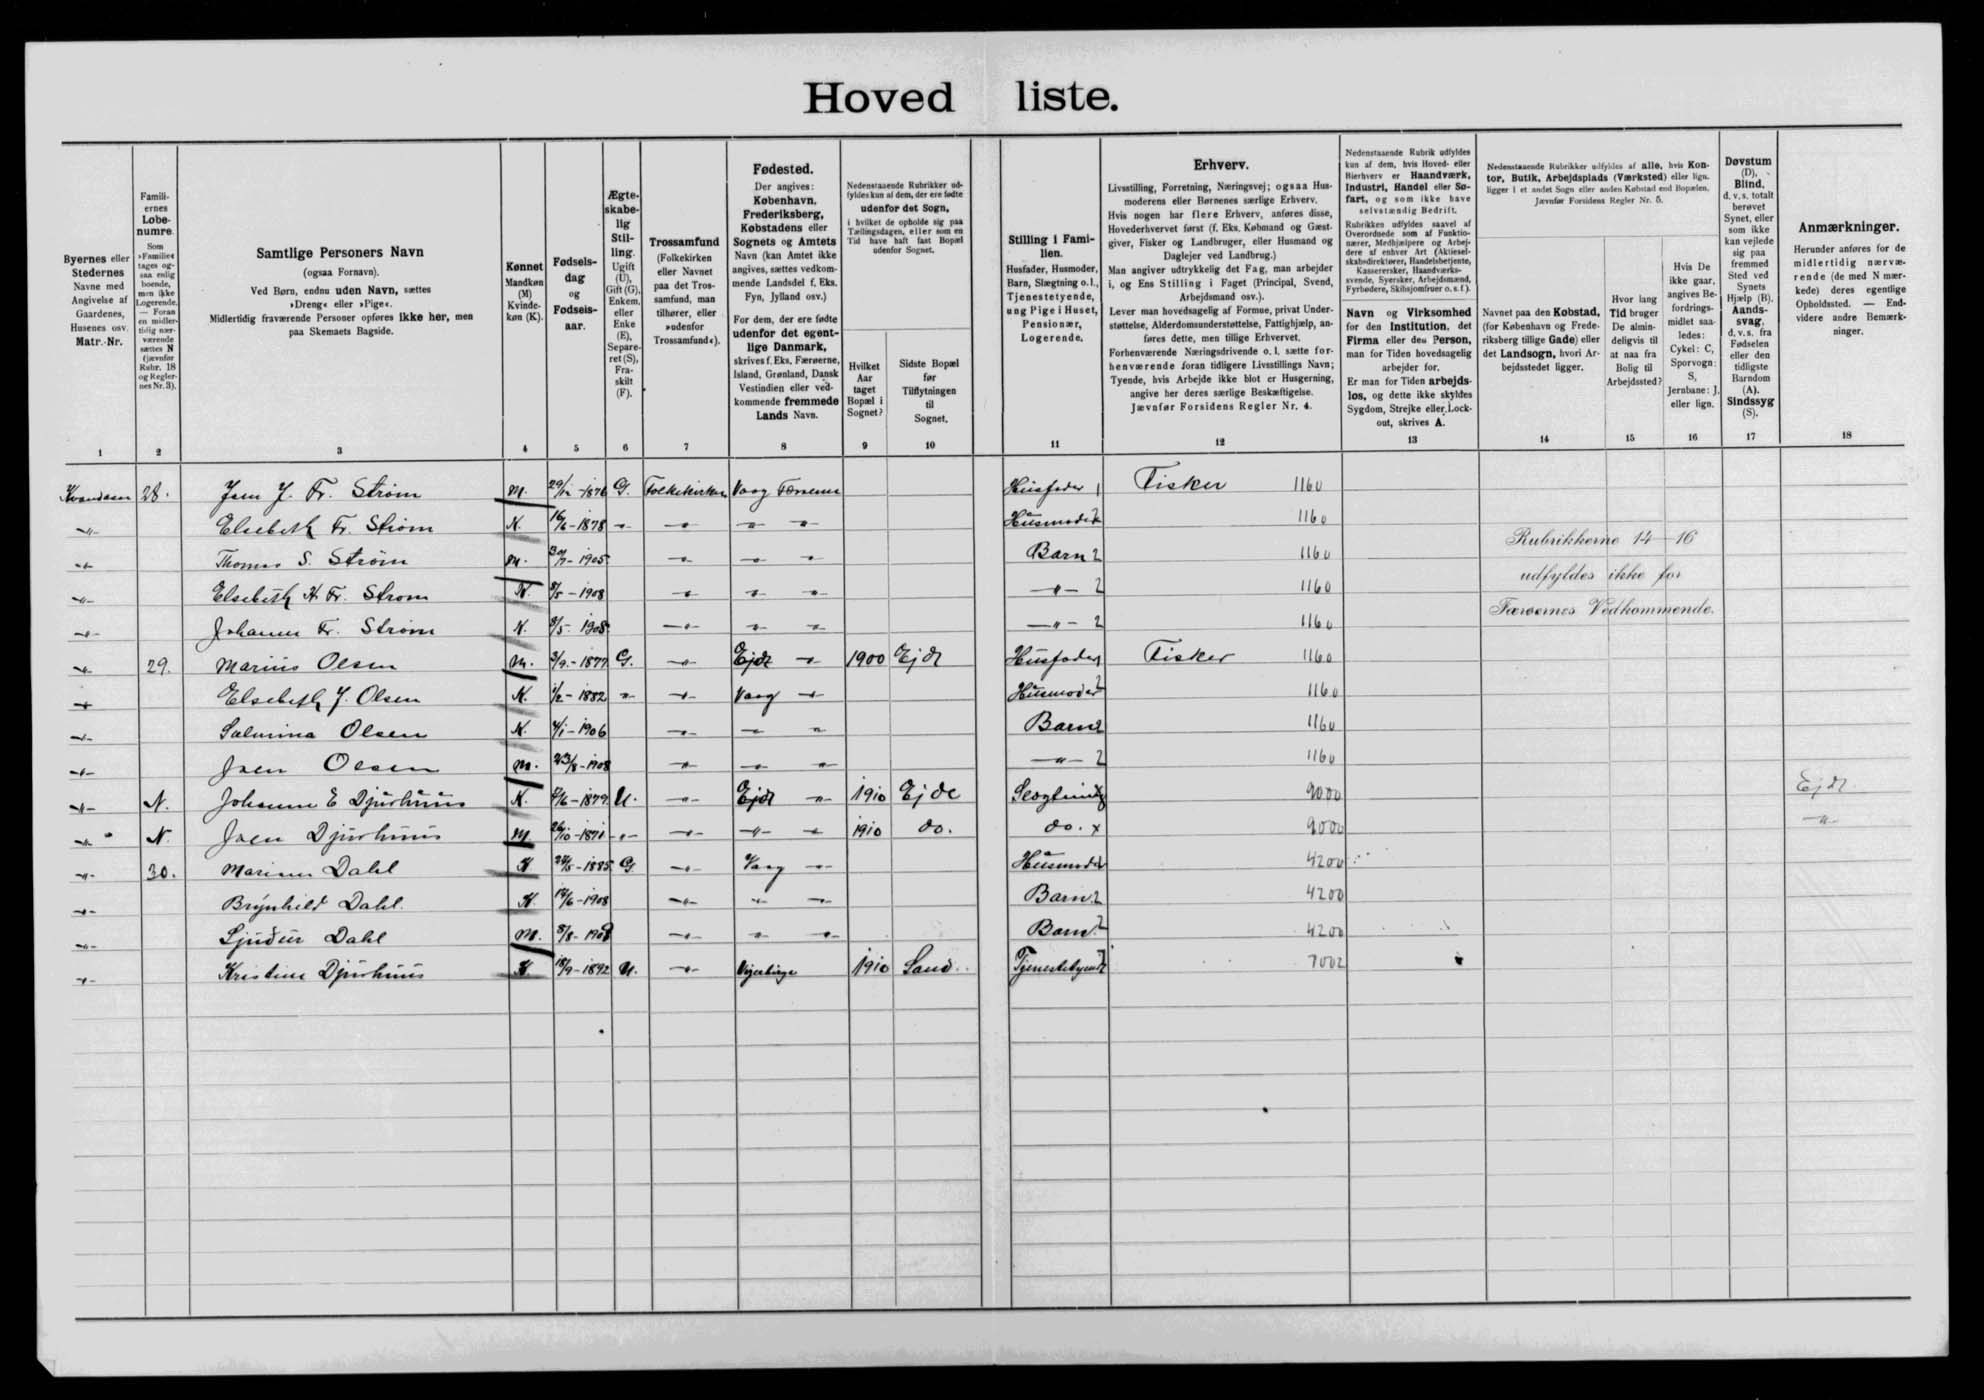 Hoved liste.
Byernes eller Stedernes Navne med Angivelse af Gaardenes, Husenes osv. Matr.-Nr.
Familiernes Løbenumre.
Som »Familie« tages ogsaa enlig boende, men ikke Logerende. — Foran en midlertidig nærværende sættes N (jævnfør Rubr. 18 og Reglernes Nr. 3).
Samtlige Personers Navn
(ogsaa Fornavn).
Ved Børn, endnu uden Navn, sættes
»Dreng« eller »Pige«.
Midlertidig fraværende Personer opføres ikke her, men
paa Skemaets Bagside.
Kønnet
Mandkøn
(M)
Kvinde-
køn (K).
Fødsels-
dag
og
Fødsels-
aar.
Ægte-
skabe-
lig
Stil-
ling.
Ugift
(U),
Gift (G),
Enkem.
eller
Enke
(E),
Separe-
ret (S),
Fra-
skilt
(F).
Trossamfund
(Folkekirken
eller Navnet
paa det Tros-
samfund, man
tilhører, eller
»udenfor
Trossamfund«).
Fødested.
Der angives:
København,
Frederiksberg,
Købstadens eller
Sognets og Amtets
Navn (kan Amtet ikke
angives, sættes vedkom-
mende Landsdel f. Eks.
Fyn, Jylland osv.)
For dem, der ere fødte
udenfor det egent-
lige Danmark,
skrives f. Eks. Færøerne,
Island, Grønland, Dansk
Vestindien eller ved-
kommende fremmede
Lands Navn.
Nedenstaaende Rubrikker ud-
fyldes kun af dem, der ere fødte
udenfor det Sogn,
i hvilket de opholde sig paa
Tællingsdagen, eller som en
Tid have haft fast Bopæl
udenfor Sognet.
Hvilket
Aar
taget
Bopæl i
Sognet?
Sidste Bopæl
før
Tilflytningen
til
Sognet.
Stilling i Fami-
lien.
Husfader, Husmoder,
Barn, Slægtning o.l.,
Tjenestetyende,
ung Pige i Huset,
Pensionær,
Logerende.
Erhverv.
Livsstilling, Forretning, Næringsvej; ogsaa Hus-
moderens eller Børnenes særlige Erhverv.
Hvis nogen har flere Erhverv, anføres disse,
Hovederhvervet først (f. Eks. Købmand og Gæst-
giver, Fisker og Landbruger, eller Husmand og
Daglejer ved Landbrug.)
Man angiver udtrykkelig det Fag, man arbejder
i, og Ens Stilling i Faget (Principal, Svend,
Arbejdsmand osv.).
Lever man hovedsagelig af Formue, privat Under-
støttelse, Alderdomsunderstøttelse, Fattighjælp, an-
føres dette, men tillige Erhvervet.
Forhenværende Næringsdrivende o. l. sætte for-
henværende foran tidligere Livsstillings Navn;
Tyende, hvis Arbejde ikke blot er Husgerning,
angive her deres særlige Beskæftigelse.
Jævnfør Forsidens Regler Nr. 4.
Nedenstaaende Rubrik udfyldes
kun af dem, hvis Hoved- eller
Bierhverv er Haandværk,
Industri, Handel eller Sø-
fart, og som ikke have
selvstændig Bedrift.
Rubrikken udfyldes saavel af
Overordnede som af Funktio-
nærer, Medhjælpere og Arbej-
dere af enhver Art (Aktiesel-
skabsdirektører, Handelsbetjente,
Kasserersker, Haandværks-
svende, Syersker, Arbejdsmænd,
Fyrbødere, Skibsjomfruer o. s. f.).
Navn og Virksomhed
for den Institution, det
Firma eller den Person,
man for Tiden hovedsagelig
arbejder for.
Er man for Tiden arbejds-
løs, og dette ikke skyldes
Sygdom, Strejke eller Lock-
out, skrives A.
Nedenstaaende Rubrikker udfyldes af alle, hvis Kon-
tor, Butik, Arbejdsplads (Værksted) eller lign.
ligger i et andet Sogn eller anden Købstad end Bopælen.
Jævnfør Forsidens Regler Nr. 5.
Navnet paa den Købstad,
(for København og Frede-
riksberg tillige Gade) eller
det Landsogn, hvori Ar-
bejdsstedet ligger.
Hvor lang
Tid bruger
De almin-
deligvis til
at naa fra
Bolig til
Arbejdssted?
Hvis De
ikke gaar,
angives Be-
fordrings-
midlet saa-
ledes:
Cykel: C,
Sporvogn:
S,
Jernbane: J,
eller lign.
Døvstum
(D),
Blind,
d. v. s. totalt
berøvet
Synet, eller
som ikke
kan vejlede
sig paa
fremmed
Sted ved
Synets
Hjælp (B).
Aands-
svag,
d. v. s. fra
Fødselen
eller den
tidligste
Barndom
(A).
Sindssyg
(S).
Anmærkninger.
Herunder anføres for de
midlertidig nærvæ-
rende (de med N mær-
kede) deres egentlige
Opholdssted. — End-
videre andre Bemærk-
ninger.
1 2 3 4 5 6 7 8 9 10 11 12 13 14 15 16 17 18
28. Joen J. Fr. Strøm M. 29/12-1876 G. Folkekirken Vaag Færøerne Husfader 1 Fisker 1160
-"- Elsebeth Fr. Strøm K. 16/6-1878 -"- -"- -"- -"- Husmoder 2 1160
-"- Thomas S. Strøm M. 30/7-1905 -"- -"- -"- Barn 2 1160
Rubrikkerne 14-16
-"- Elsebeth K. Fr. Strøm K. 8/5-1908 -"- -"- -"- -"- 2 1160
udfyldes ikke for
-"- Johanne Fr. Strøm K. 8/5-1908 -"- -"- -"- -"- 2 1160
Færøernes Vedkommende.
-"- 29. Marius Olsen M. 3/9-1877 G. -"- Ejde -"- 1900 Ejde Husfader 1 Fisker 1160
-"- Elsebeth J. Olsen K. 1/2-1882 -"- -"- Vaag -"- Husmoder 2 1160
-"- Salmina Olsen K. 4/1-1906 -"- -"- -"- Barn 2 1160
-"- Joen Olsen M. 23/8-1908 -"- -"- -"- -"- 2 1160
-"- N. Johanne E Djurhuus K. 2/6-1879 U. -"- Ejde -"- 1910 Ejde Slægtning x 9000 Ejde
-"- N. Joen Djurhuus M 26/10-1871 -"- -"- -"- -"- 1910 do. do. x 9000 -"-
-"- 30. Mariane Dahl K 24/5-1885 G -"- Vaag -"- Husmoder 4200
-"- Brynhild Dahl. K. 14/6-1908 -"- -"- -"- Barn 2 4200
-"- Sjudur Dahl M. 8/8-1909 -"- -"- -"- Barn 2 4200
-"- Kristine Djurhuus K 18/9-1892 U. -"- 1910 Sand Tjenestetyende 7002